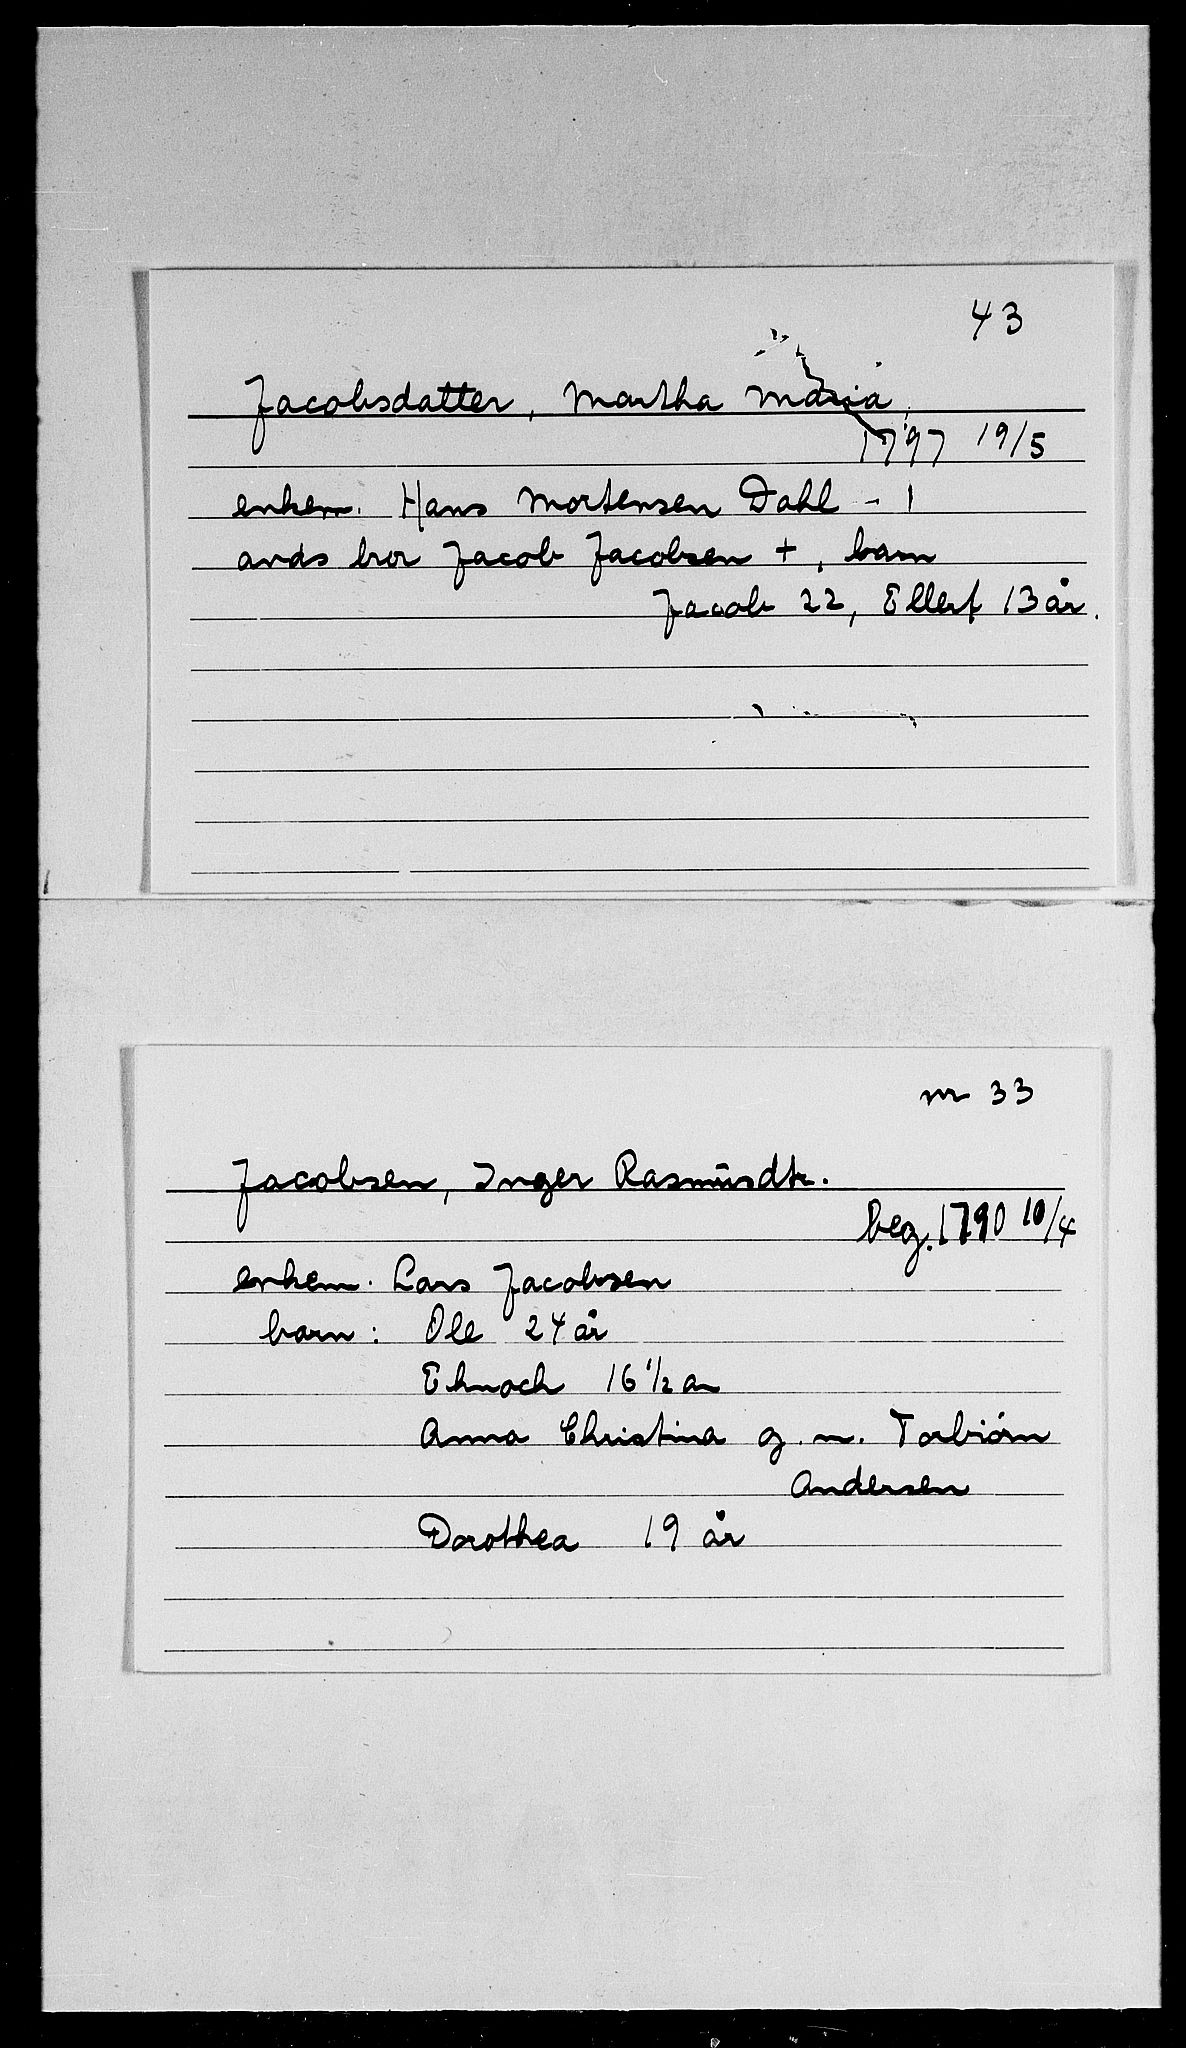 43
Jacobsdatter, Martha Maria,
1797 19/5
enkem. Hans Mortensen Dahl - 1
avds bror Jacob Jacobsen +, barn
Jacob 22, Ellert 13 år.
nr 33
Jacobsen, Inger Rasmusdtr.
beg. 1790 10/4
enkem. Lars Jacobsen
barn: Ole 24 år
Ehnoch 16 1/2 år
Anna Christina g.m. Torbiörn
Andersen
Dorothea 19 år